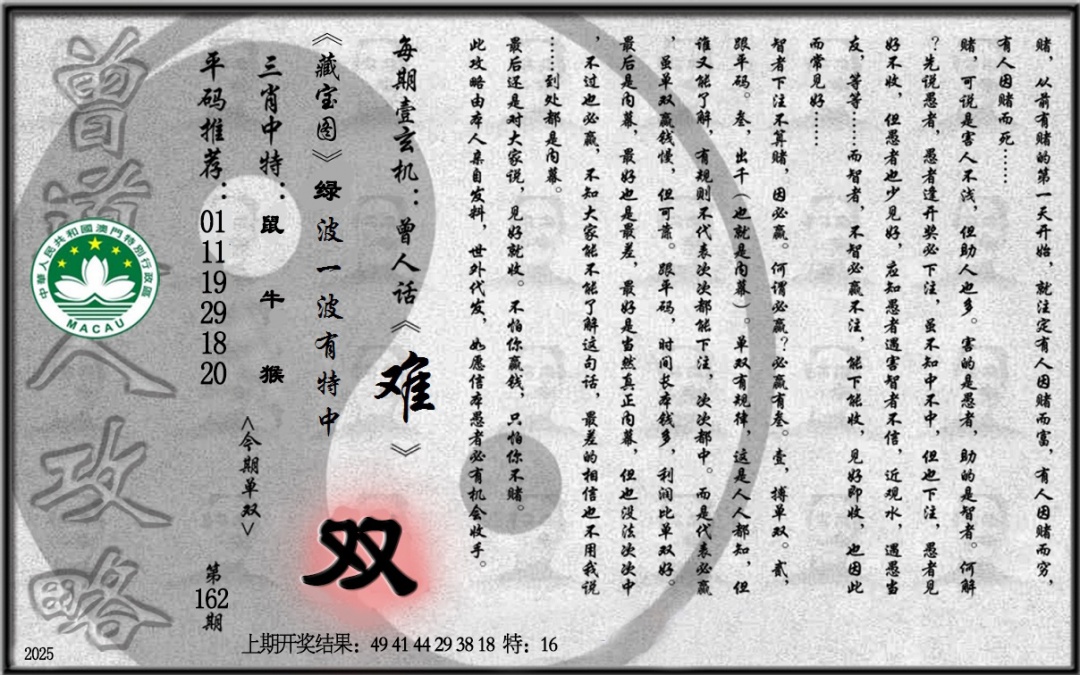 赌，从前有赌的第一天开始，就注定有人因赌而富，有人因赌而穷，
有人因赌而死……
赌，可说是害人不浅，但助人也多。害的是愚者，助的是智者。何解
？先说愚者，愚者逢开奖必下注，虽不知中不中，但也下注，愚者见
好不收，但愚者也少见好，应知愚者遇害智者不信，近观水，遇愚当
友，等等……而智者，不智必赢不注，能下能收，见好即收，也因此
而常见好……
智者下注不算赌，因必赢。何谓必赢？必赢有叁。壹，搏单双。贰，
跟平码。叁，出千（也就是内幕）。单双有规律，这是人人都知，但
谁又能了解，有规则不代表次次都能下注，次次都中。而是代表必赢
，虽单双赢钱慢，但可靠。跟平码，时间长本钱多，利润比单双好。
最后是内幕，最好也是最差，最好是当然真正内幕，但也没法次次中
，不过也必赢，不知大家能不能了解这句话，最差的相信也不用我说
……到处都是内幕。
最后还是对大家说，见好就收。不怕你赢钱，只怕你不赌。
此攻略由本人亲自发料，世外代发，如愿信本愚者必有机会收手。
每期壹玄机：曾人话《难》
《藏宝图》绿波一波有特中
双
三肖中特：鼠 牛 猴
<今期单双>
平码推荐：01 11 19 29 18 20
第162期
曾道人攻略
中華人民共和國澳門特別行政區
MACAU
上期开奖结果：49 41 44 29 38 18 特：16
2025